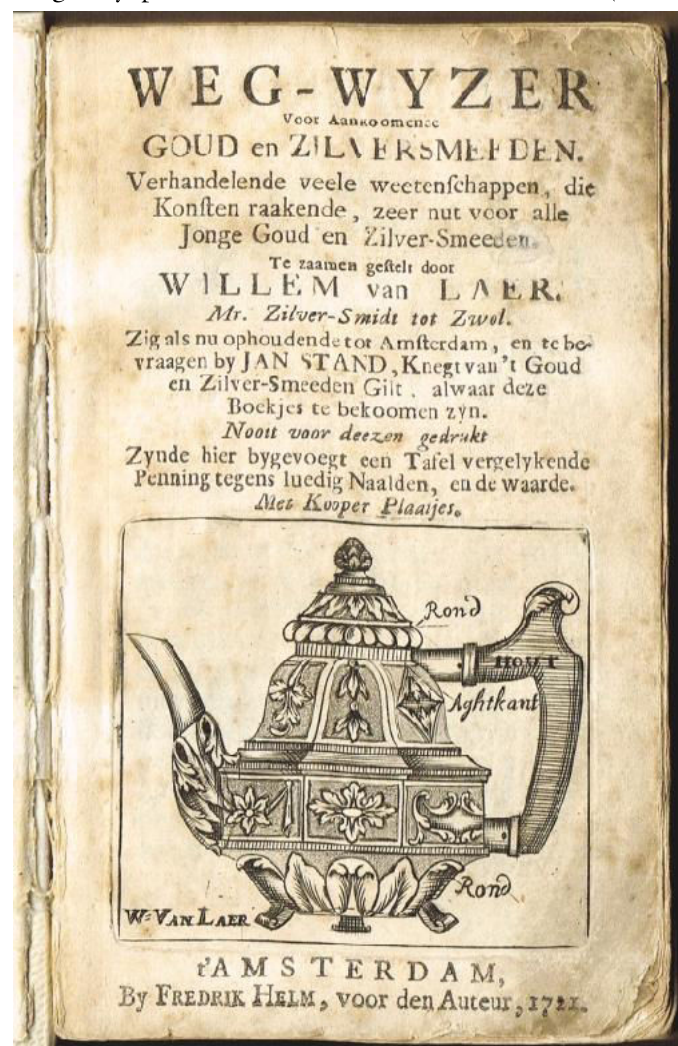 WEG-WYZER
Voor Aankoomende
GOUD en ZILVERSMEEDEN.
Verhandelende veele weetenſchappen, die
Konſten raakende, zeer nut voor alle
Jonge Goud en Zilver-Smeeden.
Te zaamen geſtelt door
WILLEM van LAER.
Mr. Zilver-Smidt tot Zwol.
Zig als nu ophoudende tot Amſterdam, en te be-
vraagen by JAN STAND, Knegt van't Goud
en Zilver-Smeeden Gilt, alwaar deze
Boekjes te bekoomen zyn.
Nooit voor deezen gedrukt
Zynde hier bygevoegt een Tafel vergelykende
Penning tegens luedig Naalden, en de waarde.
Met Kooper Plaatjes.
Rond
HOUT
Aghtkant
Rond
W. VAN LAER
t'AMSTERDAM,
By FREDRIK HELM, voor den Auteur, 1721.